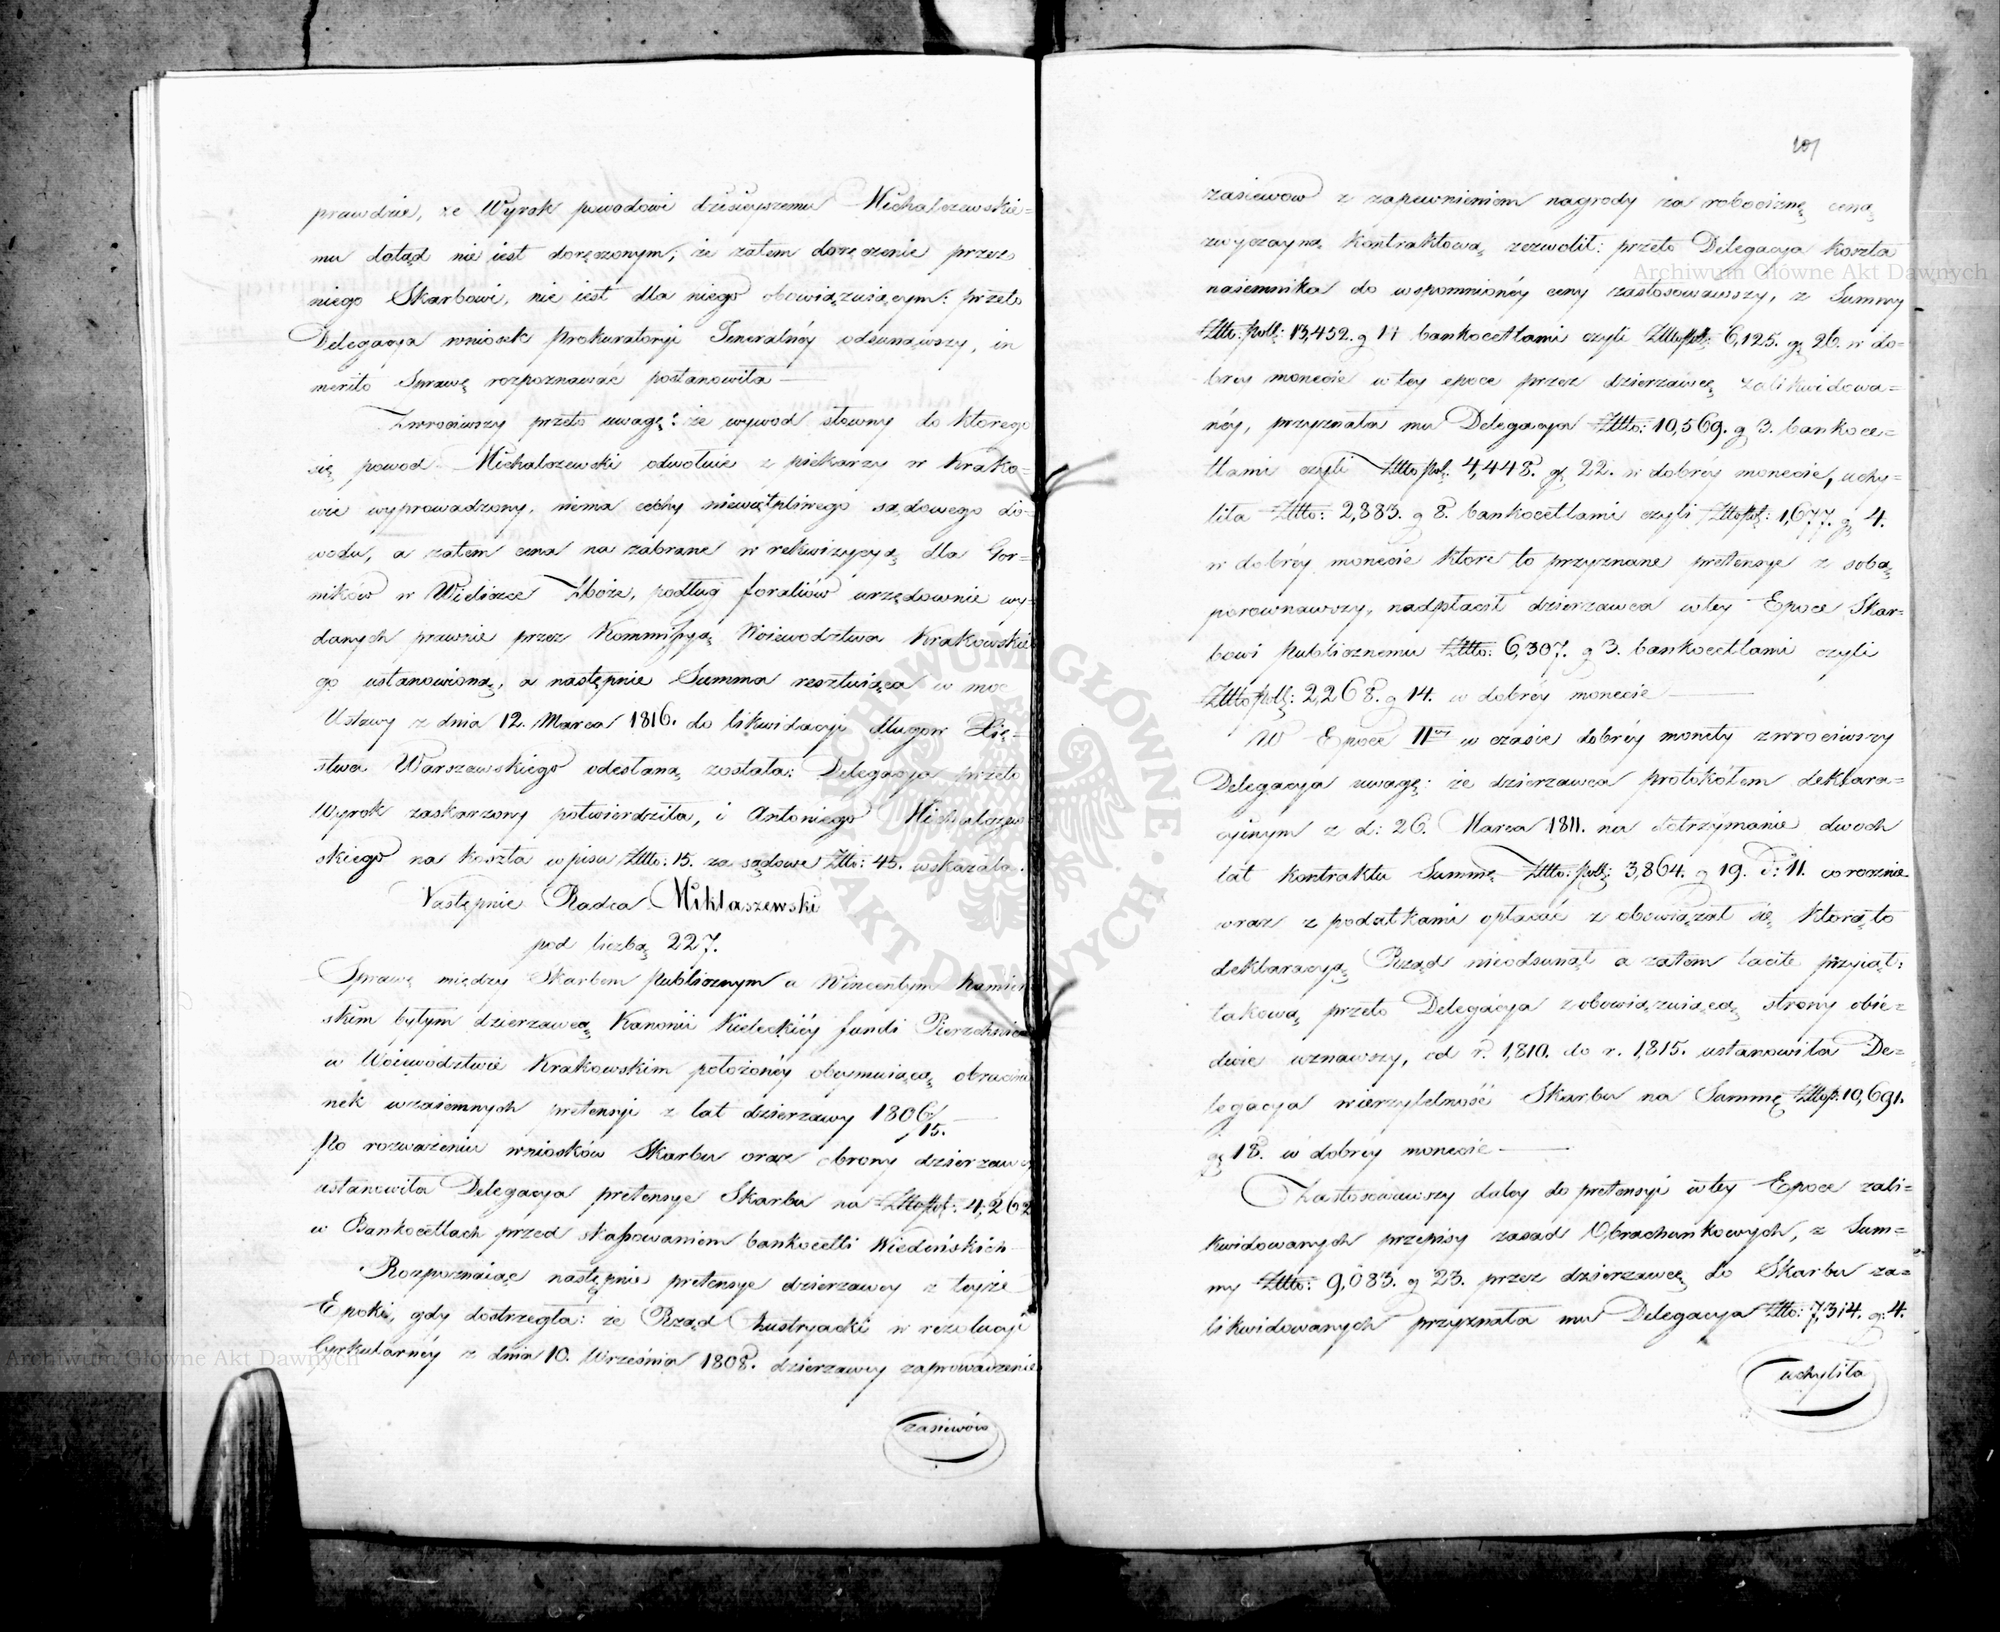 prawdzie, że Wyrok powodowi dzisieyszemu Michalczewskie=
mu dotąd nie iest doręczonym; że zatem doręczenie przez
niego Skarbowi, nie iest dla niego obowiązuiącym: przeto
Delegacya wniosek Prokuratoryi Jeneralnéy odsunąwszy, in
merito Sprawę rozpoznawać postanowiła —
Zwrociwszy przeto uwagę: że wywod słowny do ktorego
się powod Michalczewski odwołuie z piekarzy w Krako=
wie wyprowadzony, niema cechy niewątpliwego sądowego do=
wodu, a zatem cena na zabrane w rekwizycyą dla Gor=
ników w Wieliczce Zboże, podług foraliów urzędownie wy=
danych prawnie przez Kommissyą Woiewodztwa Krakowskie
go ustanowioną, a następnie Summa resztuiąca w moc
Ustawy z dnia 12. Marca 1816. do likwidacyi długow Xię=
stwa Warszawskiego odesłaną została: Delegacya przeto
Wyrok zaskarżony potwierdziła, i Antoniego Michalczew
skiego na koszta wpisu Złto: 15. za sądowe Złto: 45. wskazała.
Następnie Radca Mikłaszewski
pod liczbą 227.
Sprawę między Skarbem Publicznym a Wincentym Kamień
skim byłym dzierzawcą Kanonii Kieleckiéy fundi
w Woiewództwie Krakowskim położonéy obeymuiącą obrachu
nek wzaiemnych pretensyi z lat dzierzawy 1806/
15.
Po rozważeniu wniosków Skarbu oraz obrony dzierzawcy
ustanowiła Delegacya pretensye Skarbu na Złtopol: 4,262
w Bankocetlach przed skassowaniem bankocetli Wiedeńskich
Rozpoznaiąc następnie pretensye dzierzawcy z teyże
Epoki, gdy dostrzegła: że Rząd Austryacki w rezolucyi
Cyrkularnéy z dnia 10. Września 1808. dzierzawcy zaprowadzenie
zasiewów
101
zasiewów z zapewnieniem nagrody za robociznę ceną
zwyczayną kontraktową zezwolił: przeto Delegacya koszta
naiemnika do wspomnionéy ceny zastosowawszy, z Summy
Złto: poll: 13,452. g 11 bankocetlami czyli Złtopol: 6,125. g. 26. w do=
brey monecie w tey epoce przez dzierzawcę zalikwidowa=
néy, przyznała mu Delegacya Złto: 10,569. g 3. bankoce=
tlami czyli Złtopol: 4,448. g. 22. w dobréy monecie, uchy=
liła Złto: 2,883. g 8. bankocetlami czyli Złtopol: 1,677. g. 4.
w dobréy monecie ktore to przyznane pretensye z sobą
porownawszy, nadpłacił dzierzawca w tey Epoce Skar=
bowi Publicznemu Złto: 6,307. g 3. bankocetlami czyli
Złtopol: 2,268. g 14. w dobréy monecie —
W Epoce II w czasie dobréy monety zwrociwszy
Delegacya uwagę: że dzierzawca protokółem deklara=
cyinym z d: 26. Marca 1811. na dotrzymanie dwoch
lat kontraktu Summę Złto: poll: 3,864. g 19. d: 11. corocznie
wraz z podatkami opłacać zobowiązał się, ktorą to
deklaracyą Rząd nieodsunął a zatem tacite przyiął:
takową przeto Delegacya zobowiązuiącą strony obie=
dwie uznawszy, od r. 1,810. do r. 1,815. ustanowiła De=
legacya wierzytelność Skarbu na Summę Złtop: 10,691.
g. 18. w dobréy monecie —
Zastosowawszy daley do pretensyi w tey Epoce zali=
kwidowanych przepisy zasad Obrachunkowych, z Sum=
my Złto: 9,083. g 23. przez dzierzawcę do Skarbu za=
likwidowanych przyznała mu Delegacya Złto: 7,314. g. 4.
uchyliła
Archiwum Główne Akt Dawnych
Archiwum Główne Akt Dawnych
ARCHIWUM GŁÓWNE AKT DAWNYCH